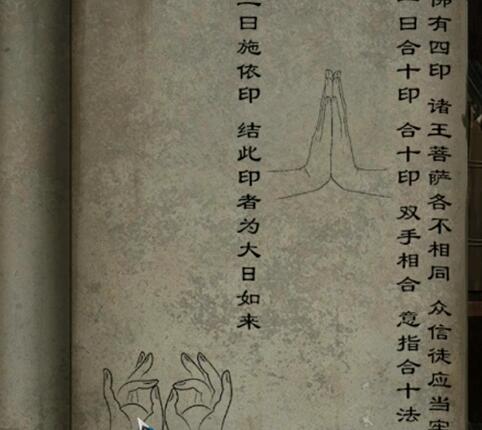 佛有四印 诸王菩萨各不相同 众信徒应当牢
一日合十印 合十印 双手相合 意指合十法
二日施依印 结此印者为大日如来